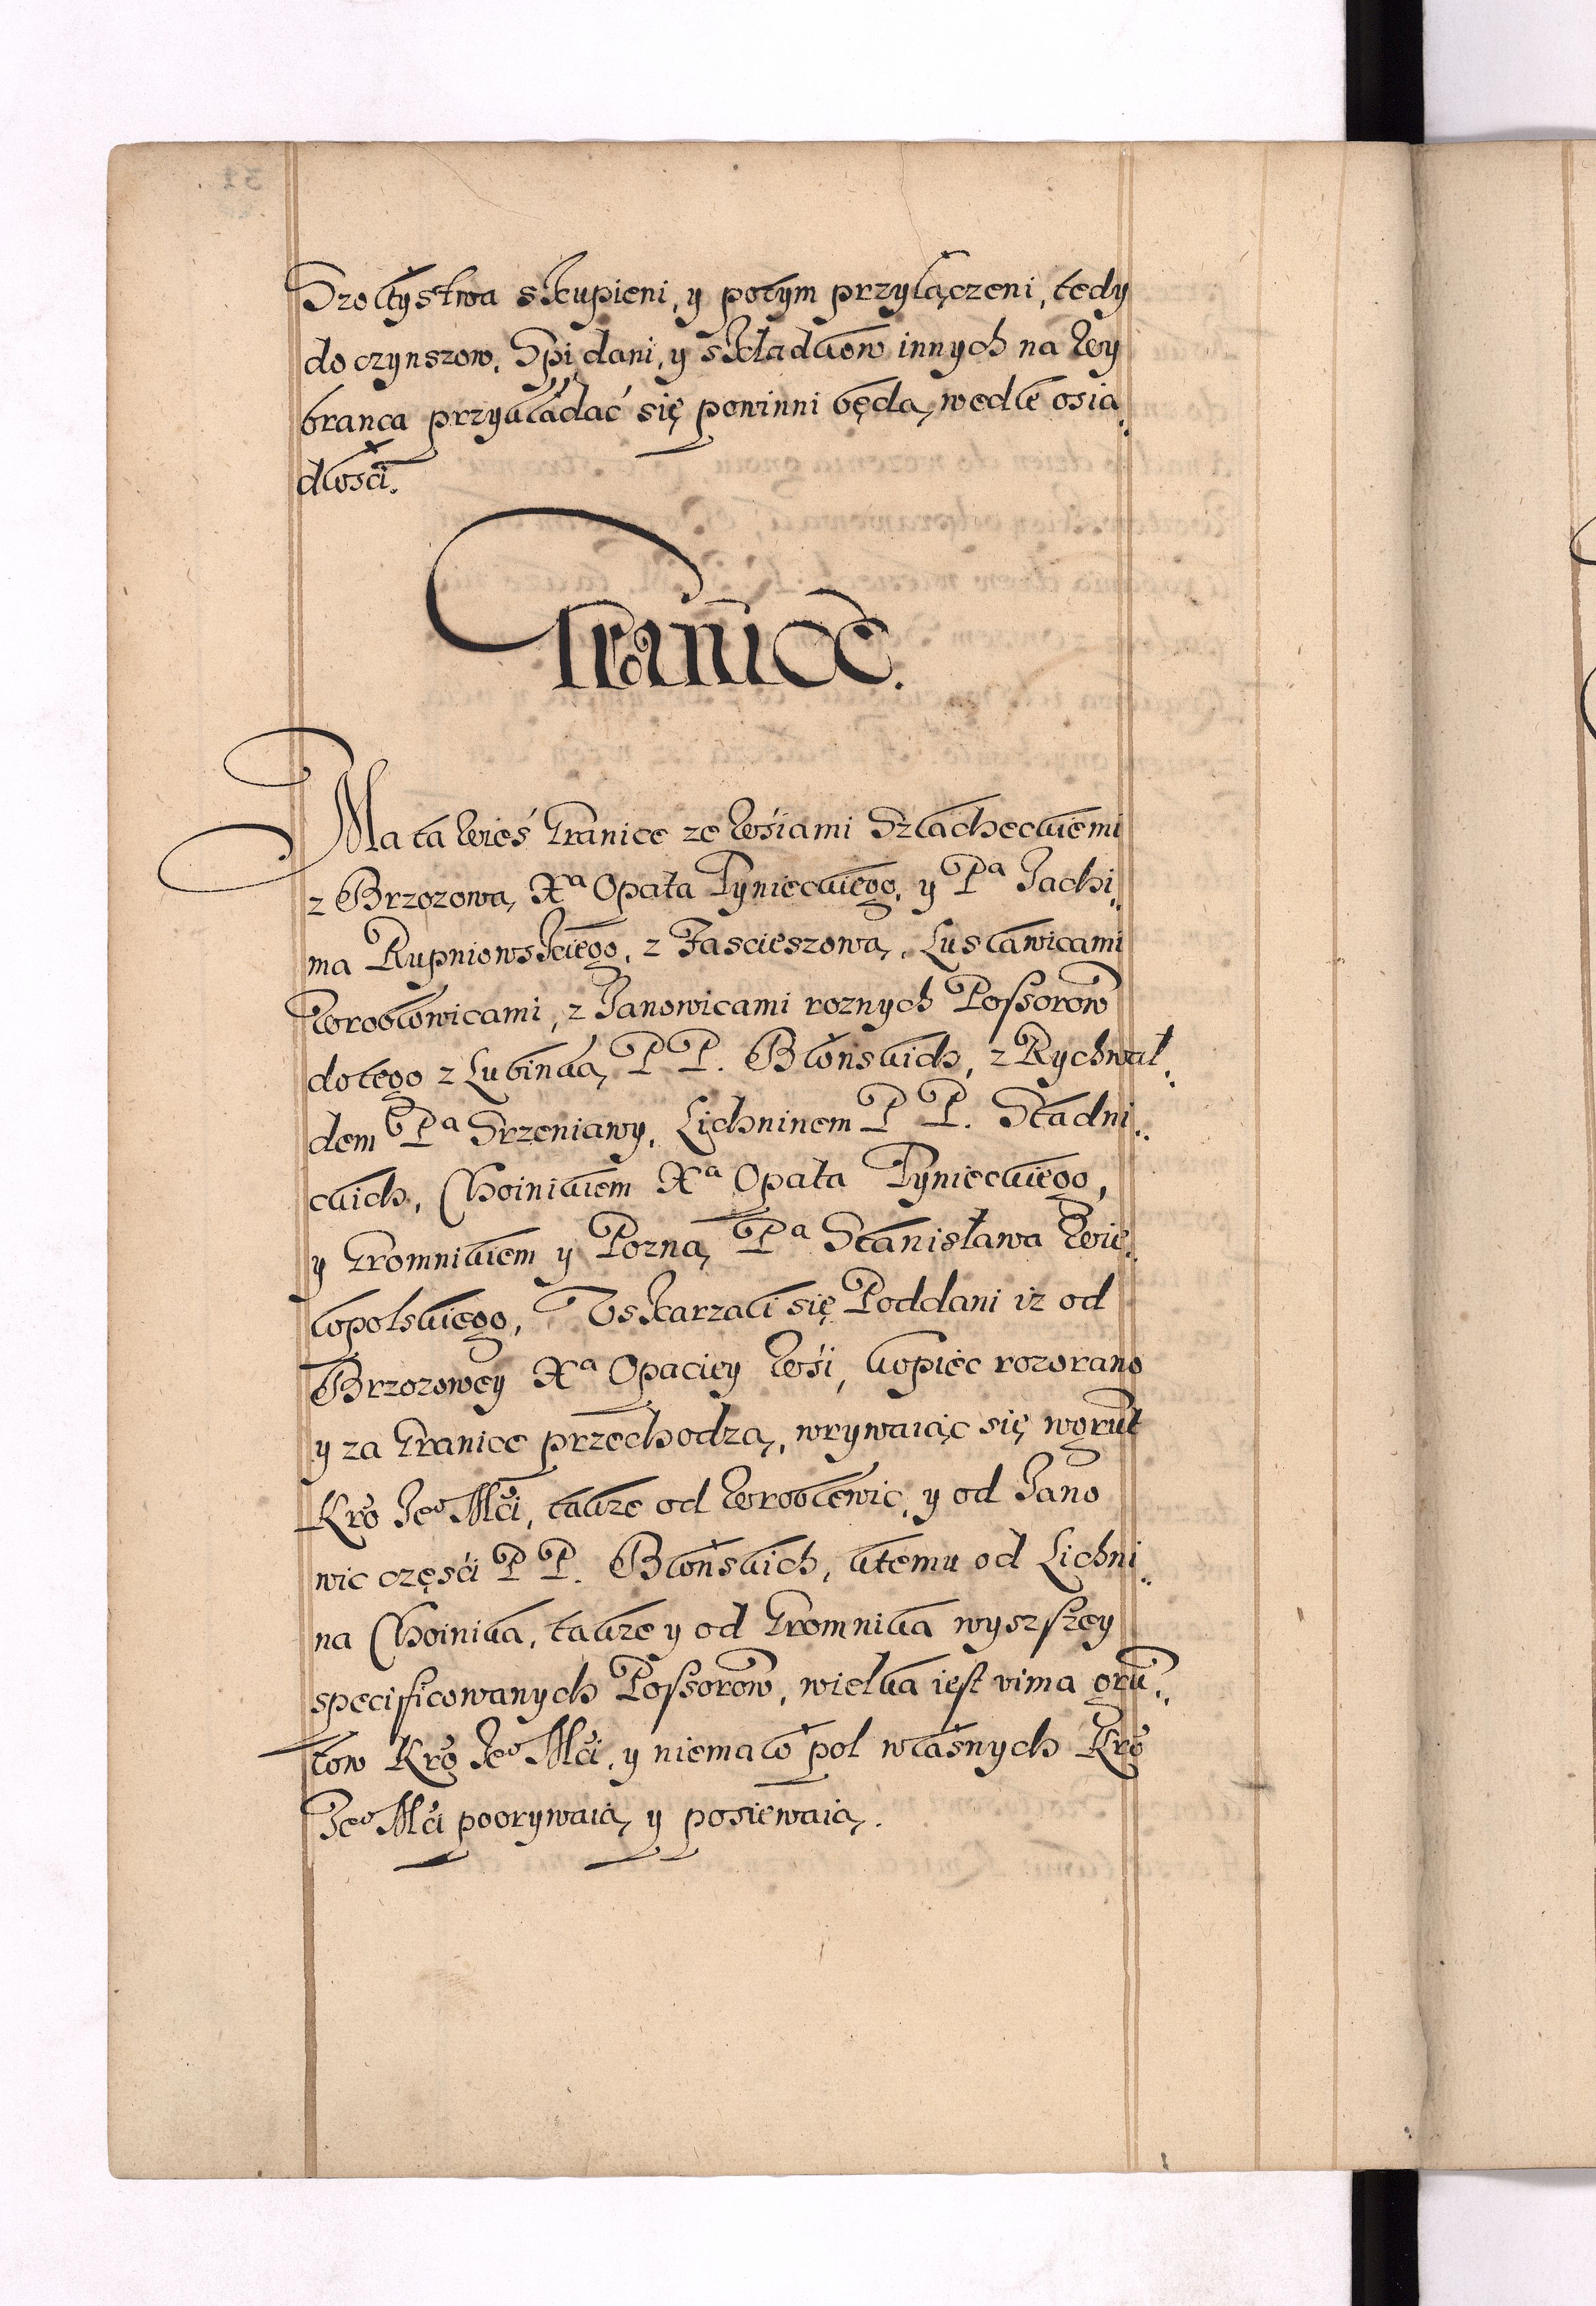 Szołtystwa skupieni, y potym przyłączeni, tedy
do czynszow, Spi, dani, y składkow innych na Wy
branca przykładać się powinni będą, wedle osia„
dłości.
Granice.
Ma ta Wieś Granice ze Wsiami Szlacheckiemi
z Brzozową, Xa Opata Tynieckiego, y Pa Jachi„
ma Rupniowskiego, z Fascieszową, Lusławicami
Wroblowicami, z Janowicami roznych Possorow
do tego z Lubinką, PP. Błonskich, z Rychwał„
dem Pa Srzeniawy, Lichninem PP. Stadni„
ckich, Choinikiem Xa Opata Tynieckiego,
y Gromnikiem y Pozną, Pa Stanisława Wie„
lopolskiego, Uskarzali się Poddani iz od
Brzozowey Xa Opaciey Wsi, kopiec rozorano
y za Granice przechodzą, wrywaiąc się w grunt
Kro Jeo Mći, także od Wroblewic, y od Jano
wic części PP. Błońskich, ktemu od Lichni„
na Choinika, także y od Gromnika wyszszey
specificowanych Possorow, wielka iest vima gru„
tow Kro Jeo Mći, y niemało pol własnych Kro
Jeo Mći poorywaią, y posiewaią.